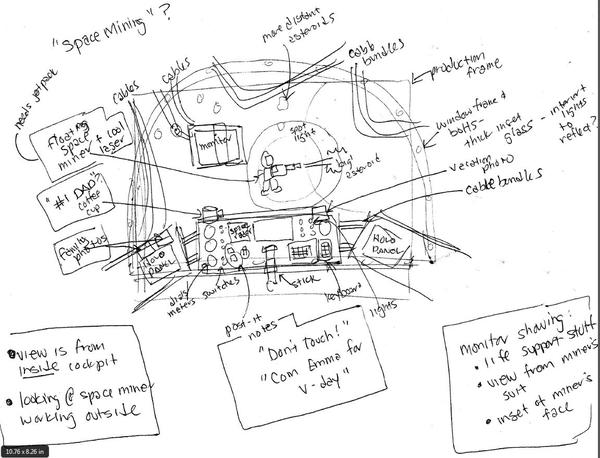 "Space Mining"?
more distant
asteroids
cable
bundles
production
frame
needs jetpack
cables
cables
Floating
space
miner + tool
laser
monitor
spot
light
big
asteroid
window frame &
bolts -
thick inset
glass - interior
lights
to
reflect?
"#1 DAD"
coffee
cup
vacation
photo
cable bundles
family
photos
HOLO
PANEL
space
laser
HOLO
PANEL
dials
meters
switches
stick
keyboard
lights
post-it
notes
• view is from
inside cockpit
• looking @ space miner
working outside
"Don't Touch!"
"Com Emma for
V-day"
monitor showing:
• life support stuff
• view from miner's
suit
• inset of miner's
face
10.76 x 8.26 in